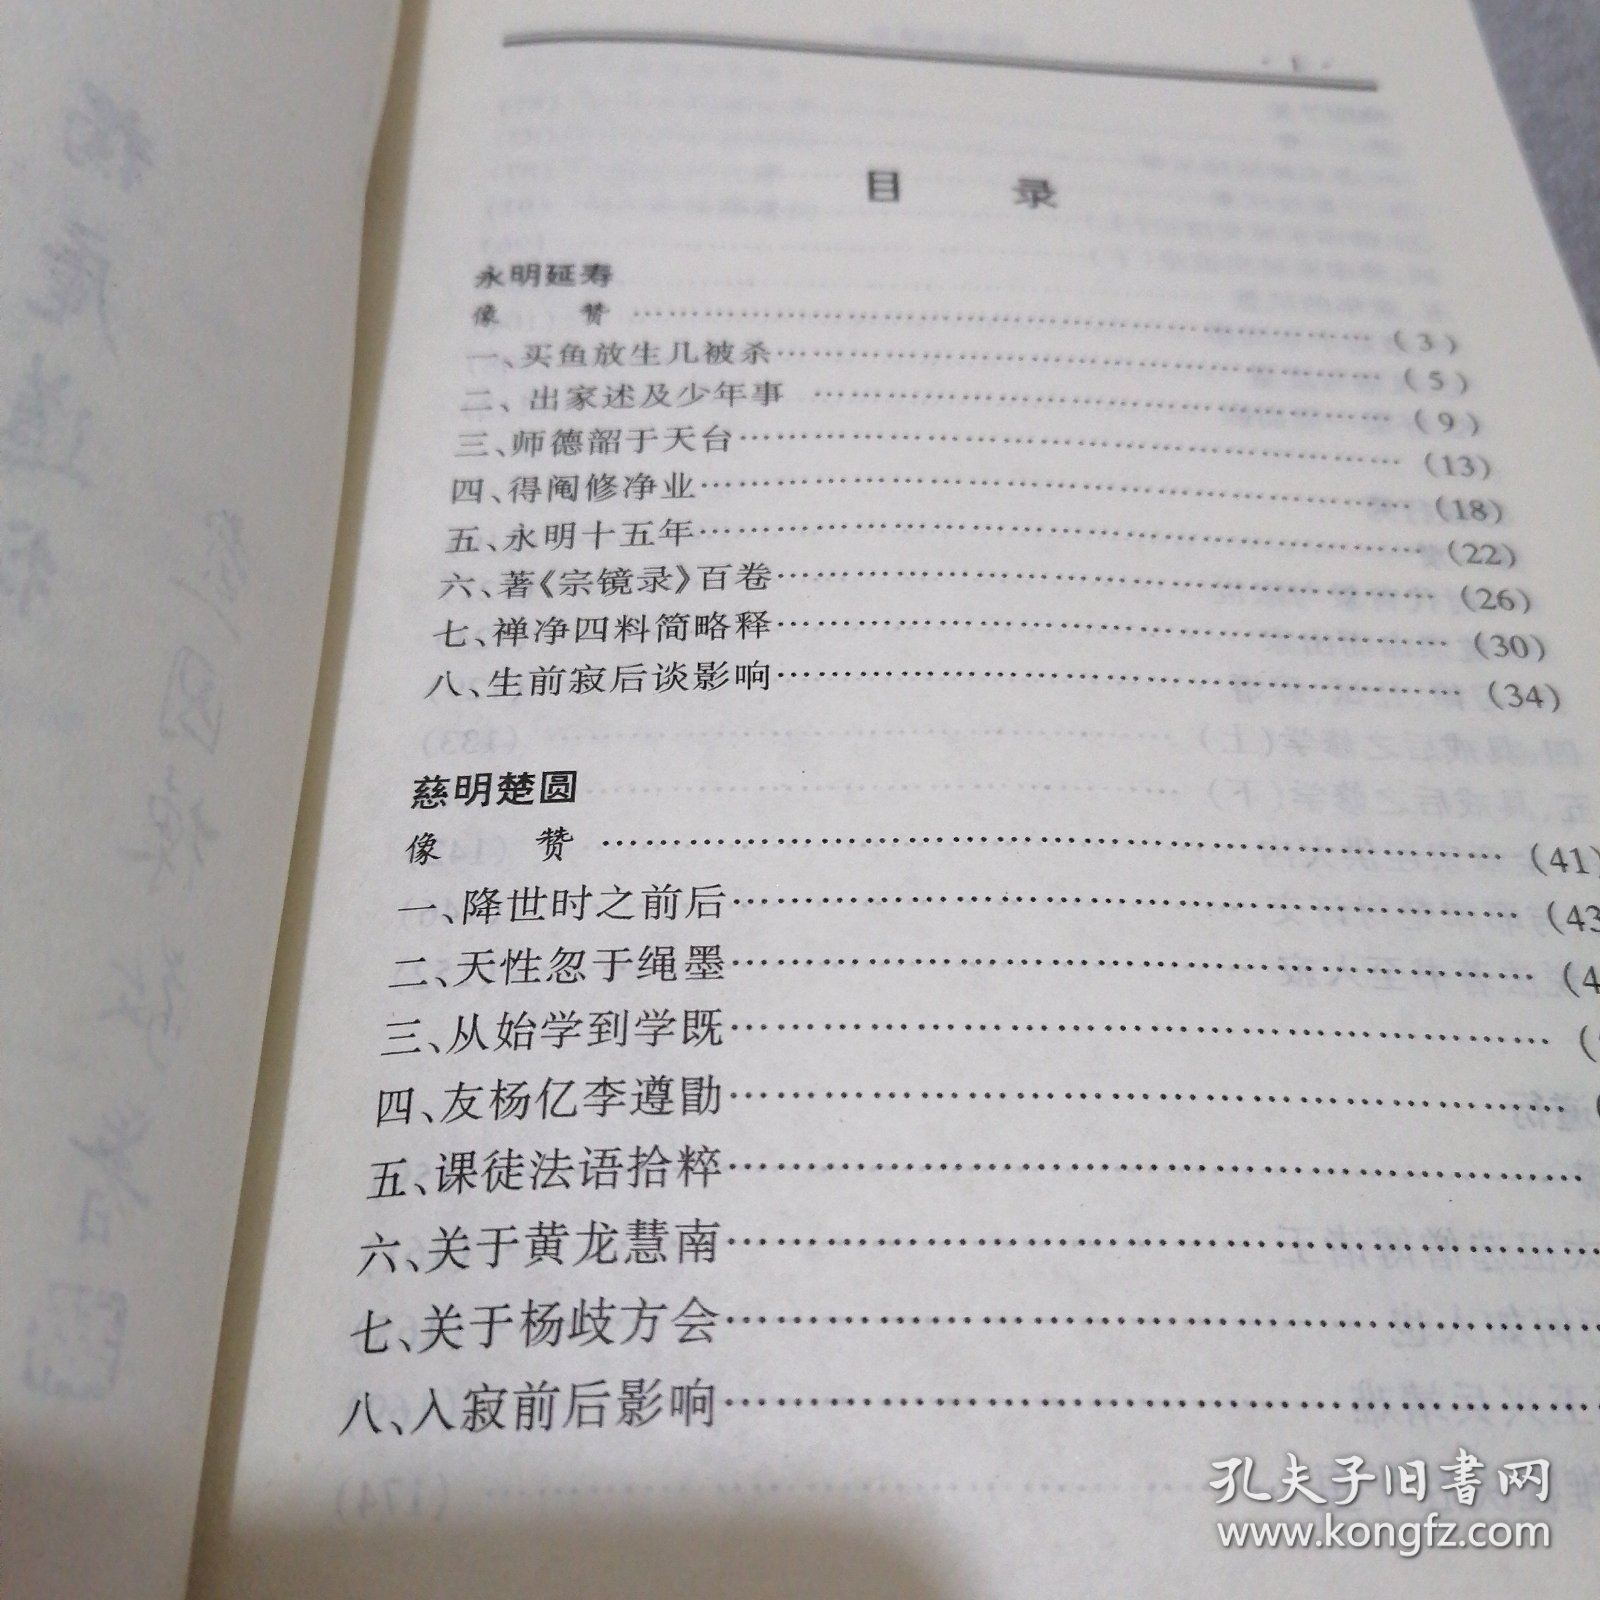 · 1 ·
目 录
永明延寿
像 赞 …………………………………………………… (3)
一、买鱼放生几被杀…………………………………………… (5)
二、出家述及少年事 …………………………………………… (9)
三、师德韶于天台…………………………………………… (13)
四、得阄修净业…………………………………………… (18)
五、永明十五年…………………………………………… (22)
六、著《宗镜录》百卷…………………………………………… (26)
七、禅净四料简略释…………………………………………… (30)
八、生前寂后谈影响…………………………………………… (34)
慈明楚圆
像 赞 …………………………………………………… (41)
一、降世时之前后…………………………………………… (43
二、天性忽于绳墨…………………………………………… (4
三、从始学到学既…………………………………………… (
四、友杨亿李遵勖…………………………………………… (
五、课徒法语拾粹……………………………………………
六、关于黄龙慧南……………………………………………
七、关于杨歧方会……………………………………………
八、入寂前后影响……………………………………………
孔夫子旧书网
www.kongfz.com